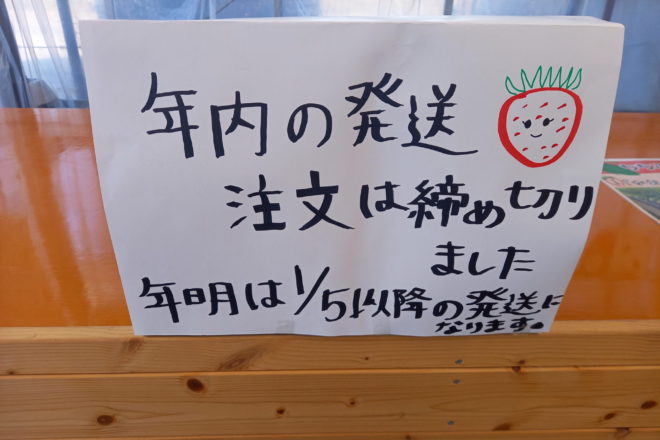 年内の発送
注文は締め切り
ました
年明は1/5以降の発送に
なります。